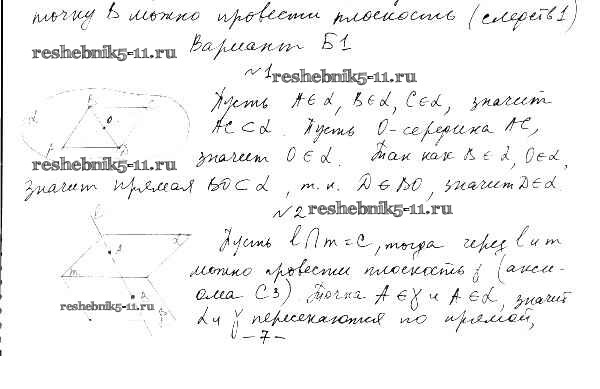 точку В можно провести плоскость (следств 1)
Вариант Б1
reshebnik5-11.ru
№1
reshebnik5-11.ru
Пусть A∈α, B∈α, C∈α, значит
AC⊂α. Пусть O-середина AC,
reshebnik5-11.ru
значит O∈α. Так как B∈α, O∈α,
значит прямая BO⊂α, т.к. D∈BO, значит D∈α.
№2
reshebnik5-11.ru
Пусть l∩m=C, тогда через l и m
можно провести плоскость γ (акси-
ома С3). Точка A∈γ и A∈α, значит
reshebnik5-11.ru
α и γ пересекаются по прямой,
-7-